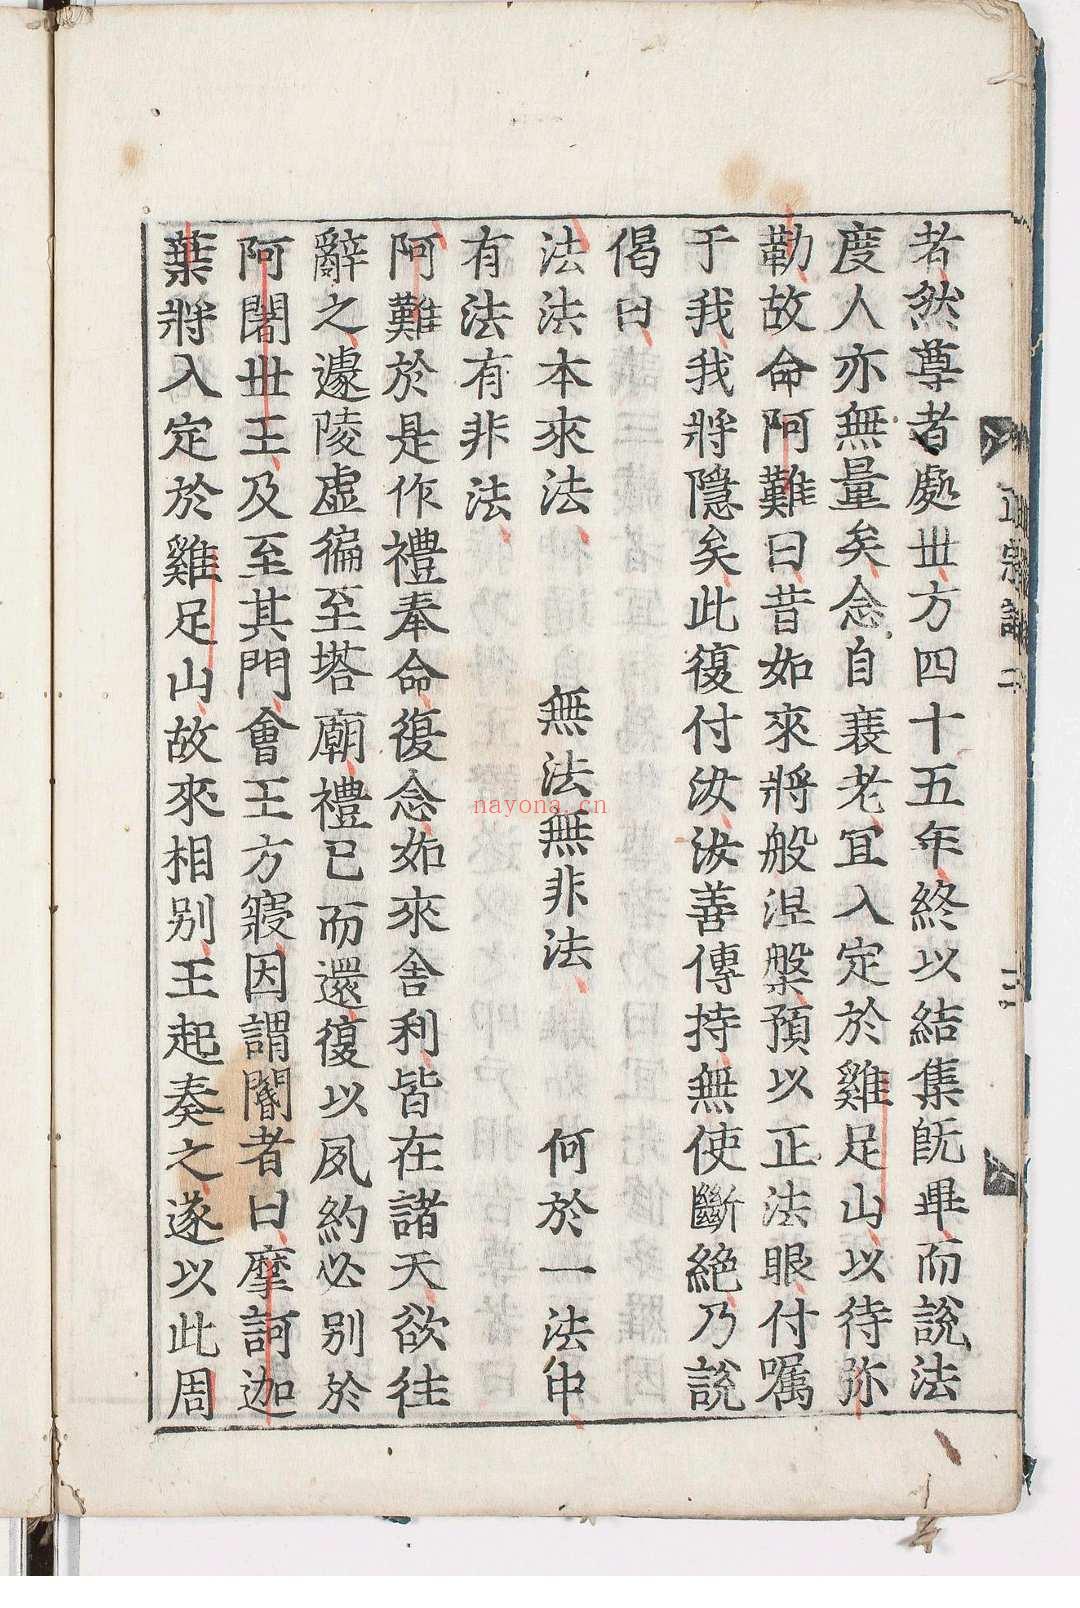 者然尊者處丗方四十五年終以結集旣畢而說法
度人亦無量矣念自衰老宜入定於雞足山以待弥
勒故命阿難曰昔如來將般涅槃預以正法眼付囑
于我我將隱矣此復付汝汝善傳持無使斷絕乃說
偈曰
法法本來法 無法無非法 何於一法中
有法有非法
阿難於是作禮奉命復念如來舍利皆在諸天欲往
辭之遽陵虛徧至塔廟禮已而還復以夙約必別於
阿闍丗王及至其門會王方寢因謂閽者曰摩訶迦
葉將入定於雞足山故來相別王起奏之遂以此周
nayona.cn